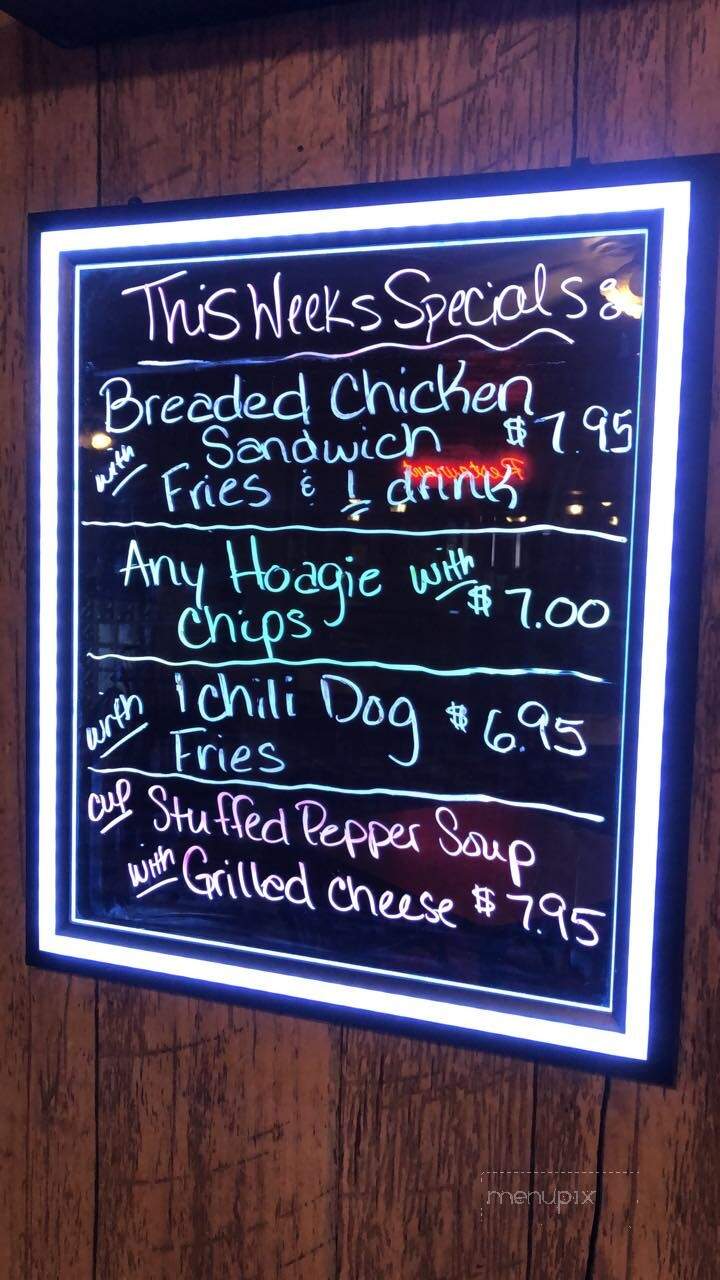 This Weeks Specials:
Breaded Chicken
Sandwich $7.95
with Fries & 1 drink
Restaurant
Any Hoagie with
Chips $7.00
with 1 Chili Dog $6.95
Fries
cup Stuffed Pepper Soup
with Grilled Cheese $7.95
menupix